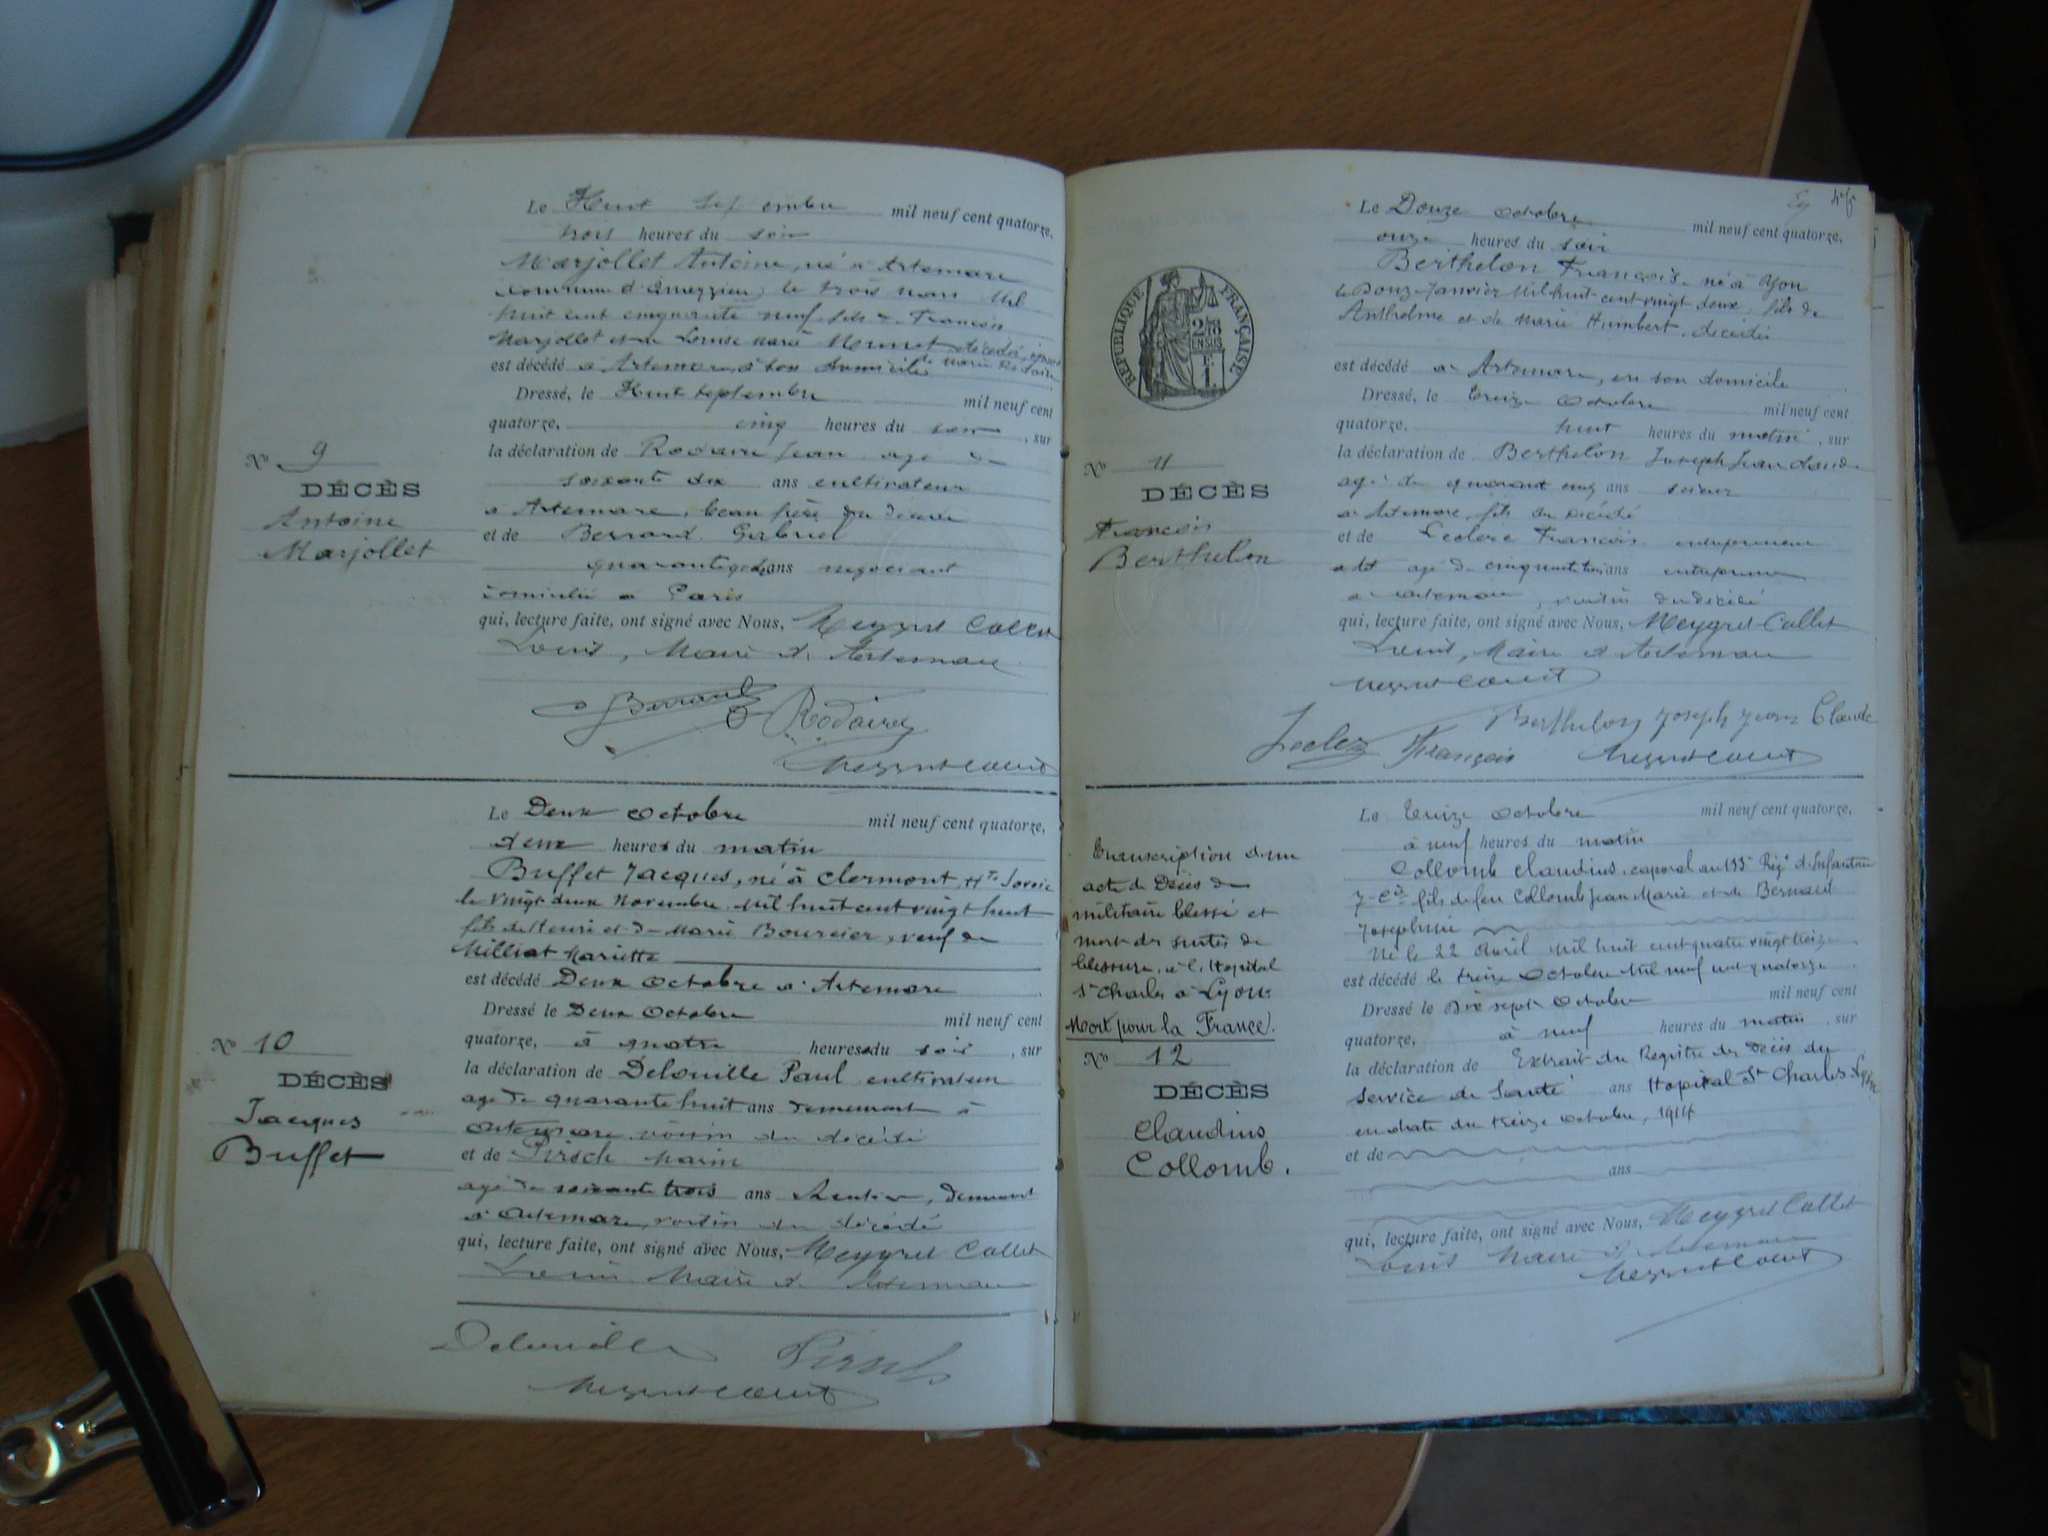 Le Huit Septembre mil neuf cent quatorze,
trois heures du soir
Marjollet Antoine, né à Artemare
commune d'Ameyzieu, le trois mars Mil
huit cent cinquante neuf, fils de François
Marjollet et de Louise Marie Monnet décédés, époux
de Marie Rodaire
est décédé à Artemare, à son domicile
Dressé, le Huit Septembre mil neuf cent
quatorze, cinq heures du soir, sur
la déclaration de Rodaire Jean age de
soixante dix ans cultivateur
à Artemare, beau frère du décédé
et de Berraud Gabriel
ans négociant
domicilié à Paris
qui, lecture faite, ont signé avec Nous, Meygret Collet
Louis, Maire d'Artemare
Berraud Rodaire
Meygret Collet
No 9
DÉCÈS
Antoine
Marjollet
Le Deux Octobre mil neuf cent quatorze,
deux heures du matin
Buffet Jacques, né à Clermont, Hte Savoie
le vingt deux Novembre Mil huit cent vingt huit
fils de Henri et de Marie Boursier, veuf de
Milliat Mariette
est décédé Deux Octobre à Artemare
Dressé le Deux Octobre mil neuf cent
quatorze, à quatre heures du soir, sur
la déclaration de Delouille Paul cultivateur
age de quarante huit ans demeurant à
Artemare voisin du décédé
et de Pirsch Marin
age de soixante trois ans Rentier, demeurant
à Artemare, voisin du décédé
qui, lecture faite, ont signé avec Nous, Meygret Collet
Louis Maire d'Artemare
Delouille Pirsch
Meygret Collet
No 10
DÉCÈS
Jacques
Buffet
Le Douze Octobre mil neuf cent quatorze,
onze heures du soir
Berthelon François, né à Yon
le Douze Janvier Mil huit cent vingt deux, fils de
Anthelme et de Marie Humbert, décédés
est décédé à Artemare, en son domicile
Dressé, le treize Octobre mil neuf cent
quatorze, huit heures du matin, sur
la déclaration de Berthelon Joseph Jean Claude
age de quarante cinq ans scieur
à Artemare, fils du décédé
et de Leclerc François entrepreneur
age de cinquante trois ans entrepreneur
à Artemare, voisin du décédé
qui, lecture faite, ont signé avec Nous, Meygret-Collet
Louis, Maire d'Artemare
Meygret Collet
Berthelon Joseph Jean Claude
Leclerc François Meygret Collet
RÉPUBLIQUE FRANÇAISE
No 11
DÉCÈS
François
Berthelon
Le treize Octobre mil neuf cent quatorze,
à neuf heures du matin
Collomb Claudius, caporal au 133e Régt d'Infanterie
7e Cie fils de feu Collomb Jean Marie et de Bernard
Joséphine
Né le 22 Avril Mil huit cent quatre vingt treize
est décédé le treize Octobre Mil neuf cent quatorze
Dressé le Dix sept Octobre mil neuf cent
quatorze, à neuf heures du matin, sur
la déclaration de Extrait du Registre des Décès du
Service de Santé ans Hopital St Charles Lyon
en date du treize Octobre, 1914
et de
ans
qui, lecture faite, ont signé avec Nous, Meygret Collet
Louis Maire d'Artemare
Meygret Collet
transcription d'un
acte de Décès de
militaire blessé et
mort des suites de
blessure, à l'Hopital
St Charles à Lyon
Mort pour la France.
No 12
DÉCÈS
Claudius
Collomb.